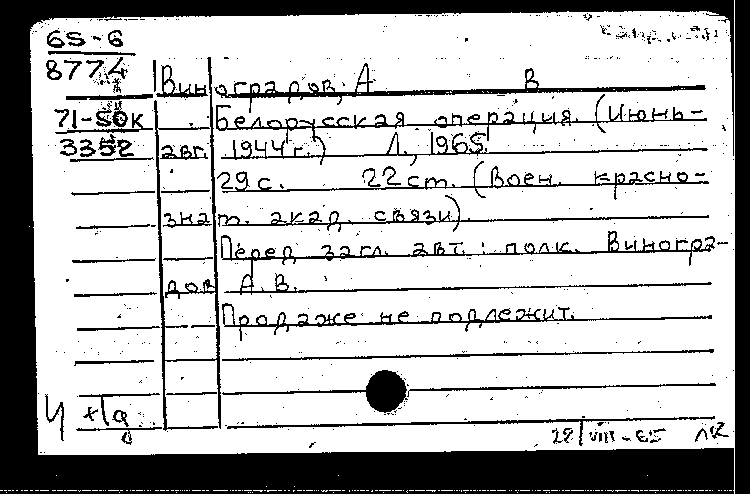 65-6
8774
Виноградов, А В
71-50к Белорусская операция. (Июнь-
3352 авг. 1944 г.) Л., 1965.
29 с. 22 см. (Воен. красно-
знам. акад. связи).
Перед загл. авт.: полк. Виногра-
дов А. В.
Продаже не подлежит.
28/VIII-65